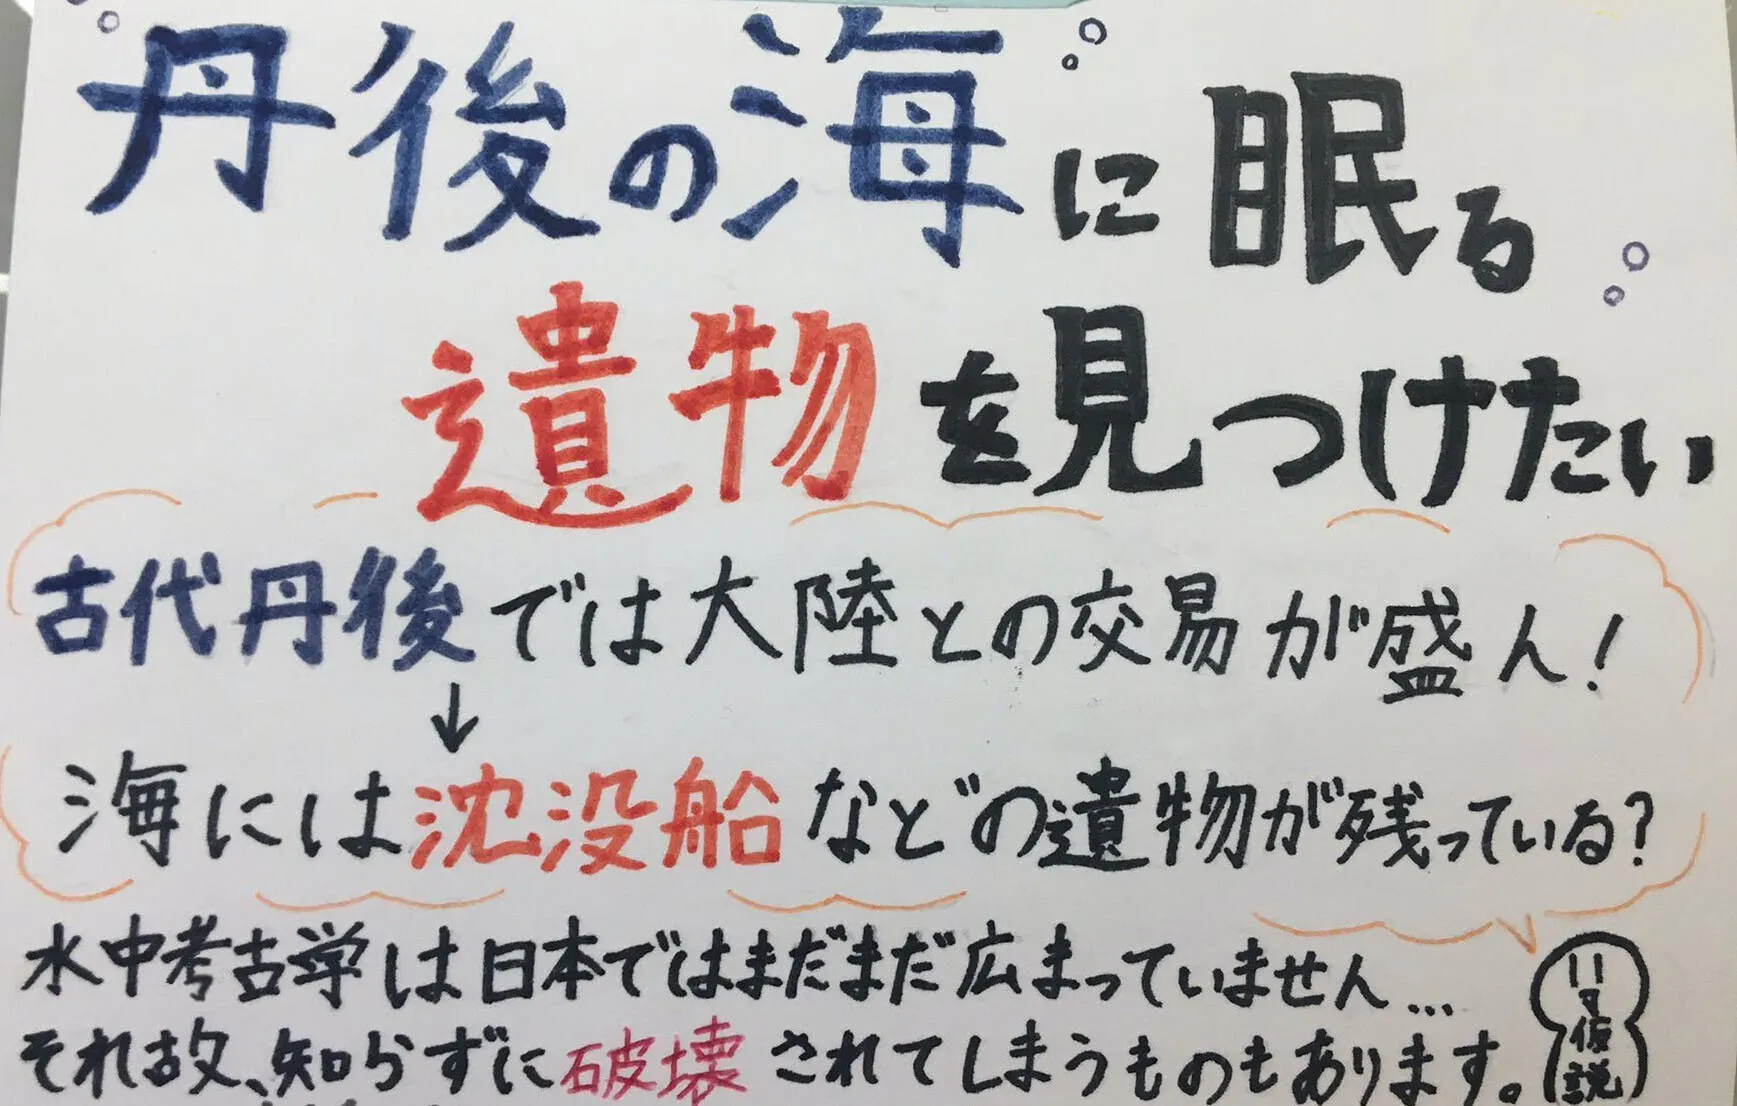 丹後の海に眠る
遺物を見つけたい
古代丹後では大陸との交易が盛ん!
↓
海には沈没船などの遺物が残っている?
水中考古学は日本ではまだまだ広まっていません…
それ故、知らずに破壊されてしまうものもあります。
仮説